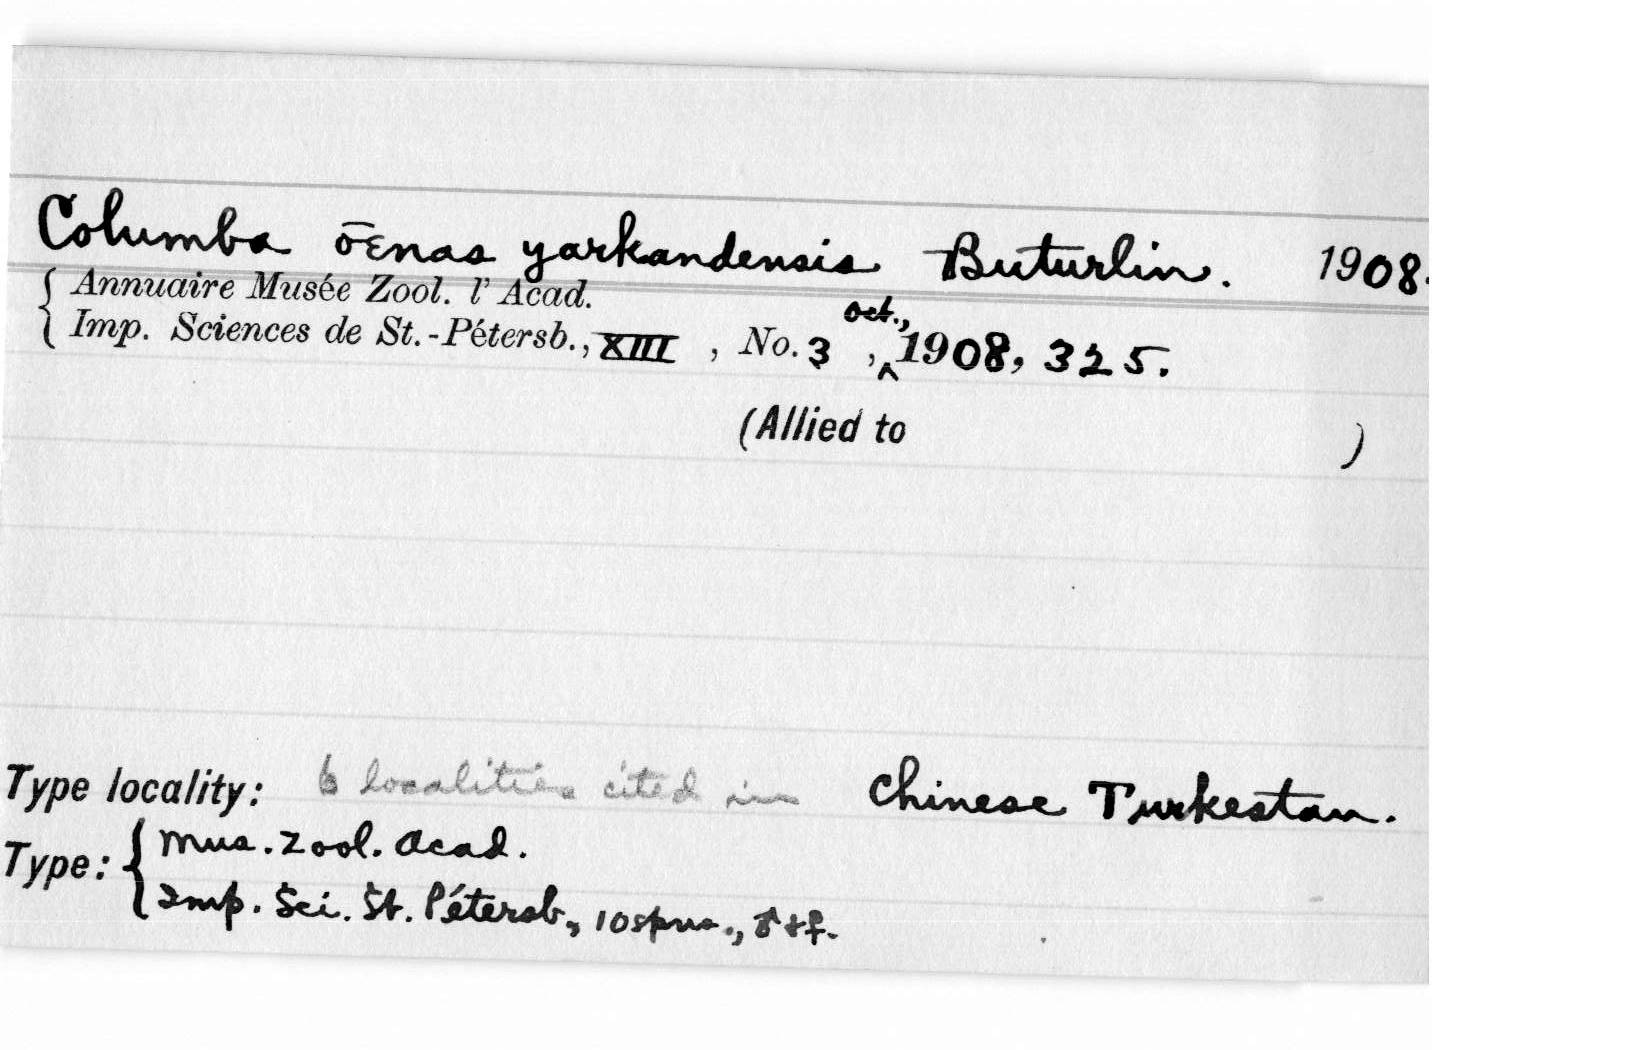 Columba ōenas yarkandensis Buturlin. 1908.
{ Annuaire Musée Zool. l' Acad.
{ Imp. Sciences de St.-Pétersb., XIII , No. 3 , oct., 1908, 325.
(Allied to )
Type locality: 6 localities cited in Chinese Turkestan.
Type: { Mus. Zool. Acad.
Imp. Sci. St. Pétersb., 10 spms., ♂ + ♀.